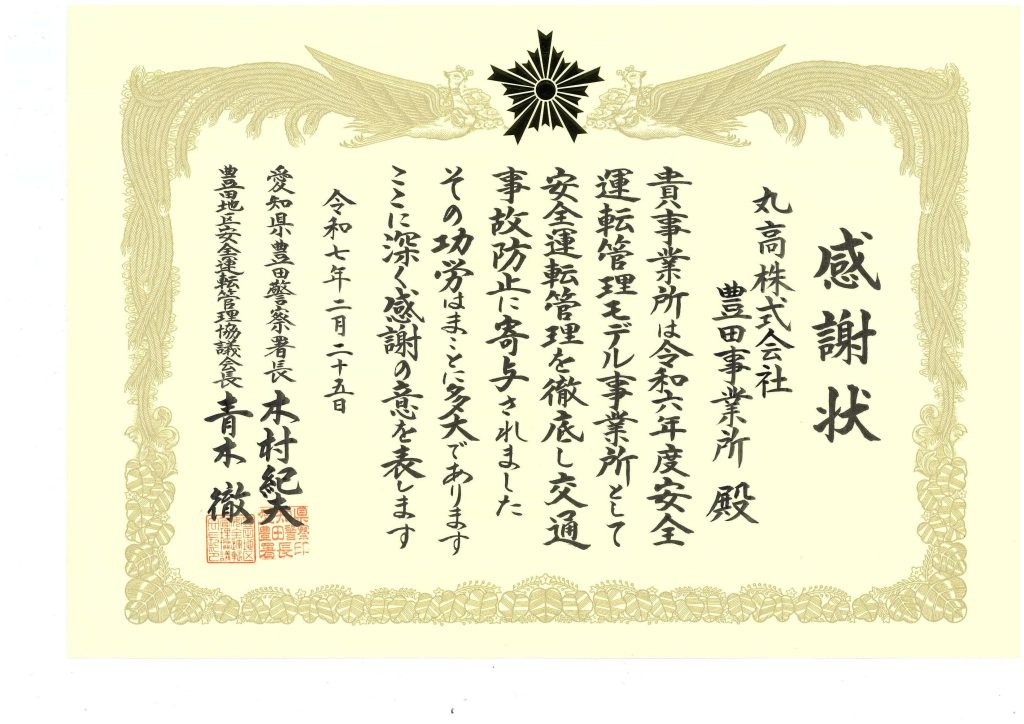 感謝状
丸高株式会社
豊田事業所 殿
貴事業所は令和六年度安全
運転管理モデル事業所として
安全運転管理を徹底し交通
事故防止に寄与されました
その功労はまことに多大であります
ここに深く感謝の意を表します
令和七年二月二十五日
愛知県豊田警察署長 木村紀夫
豊田地区安全運転管理協議会長 青木 徹